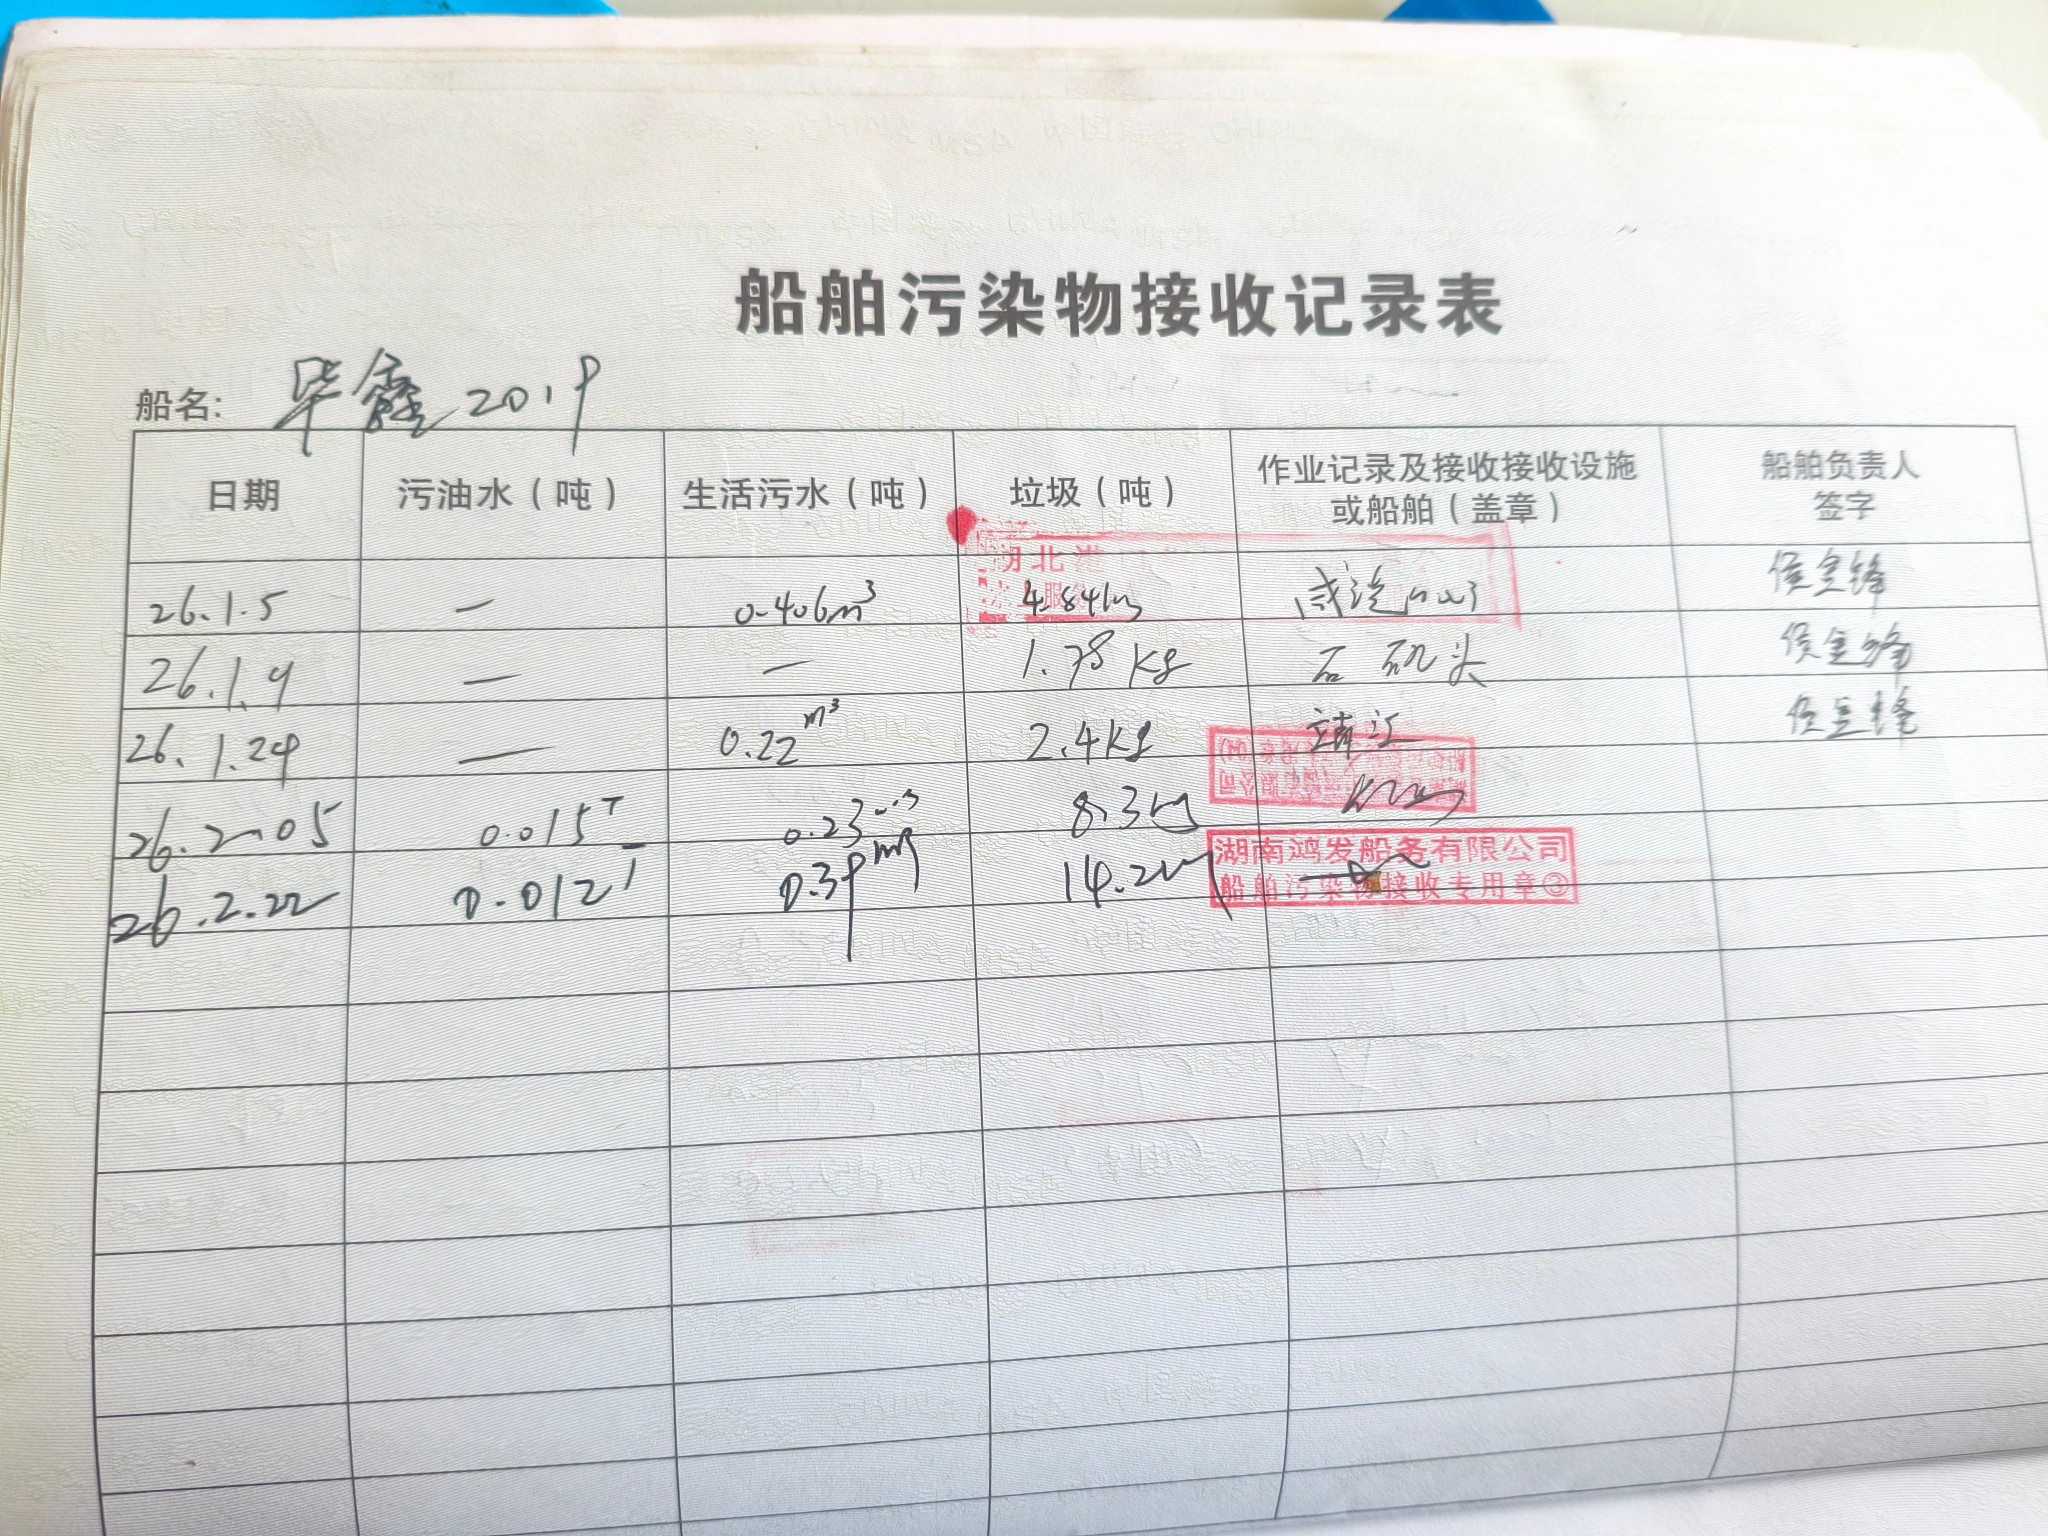 船舶污染物接收记录表
船名: 华鑫2019
日期 污油水（吨） 生活污水（吨） 垃圾（吨） 作业记录及接收接收设施或船舶（盖章） 船舶负责人签字
26.1.5 — 0.406m³ 4.84kg
26.1.9 — — 1.78kg 石矶头
26.1.24 — 0.22m³ 2.4kg 靖江
26.2.05 0.015T 0.23m³ 8.3kg
26.2.22 0.012T 0.39m³ 14.2kg
湖南鸿发船务有限公司
船舶污染物接收专用章③